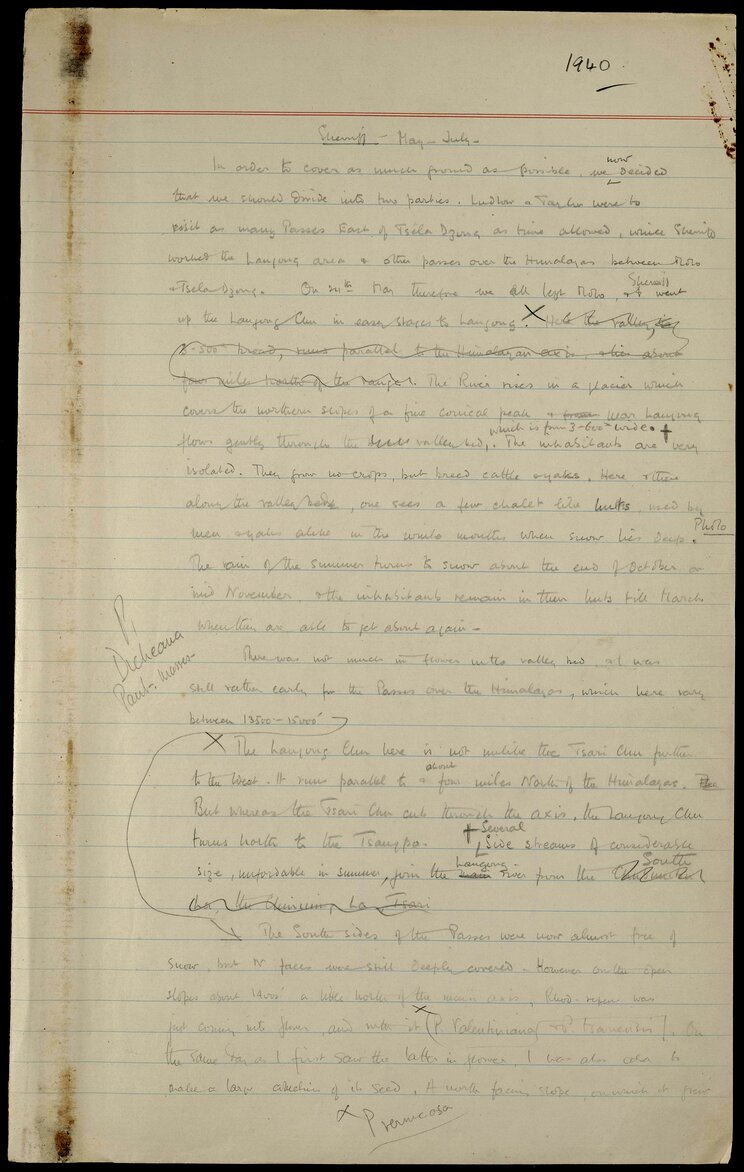 1940
Sherriff - May - July -
In order to cover as much ground as possible, we now decided
that we should divide into two parties. Ludlow & Taylor were to
visit as many Passes East of Tsela Dzong as time allowed, while Sherriff
worked the Langong area & other passes over the Himalayas between Molo
& Tsela Dzong. On May therefore we all left Molo, & Sherriff went
up the Langong Chu in easy stages to Langong. X Here the valley,
3-500ˣ broad, runs parallel to the Himalayan axis, & lies about
four miles north of the range. The River rises in a glacier which
covers the northern slopes of a fine conical peak near Langong
flows gently through the valley bed, which is from 3-600ˣ wide. † The inhabitants are very
isolated. They grow no crops, but breed cattle & yaks. Here & there
along the valley, one sees a few chalet like huts, used by
men & yaks alike in the winter months when snow lies deep.
Photo
The rain of the summer turns to snow about the end of October or
mid November, & the inhabitants remain in their huts till March
when they are able to get about again -
P.
Dicheana
There was not much in flower in the valley bed, & it was
still rather early for the Passes over the Himalayas, which here vary
between 13500 - 15000'
X The Langong Chu here is not unlike the Tsari Chu further
to the West. It runs parallel to & about four miles North of the Himalayas.
But whereas the Tsari Chu cuts through the axis, the Langong Chu
turns north to the Tsangpo. † Several Side streams of considerable
size, unfordable in summer, join the Langong River from the South
The South sides of the Passes were now almost free of
snow, but N faces were still deeply covered. However on the open
slopes about 14000' a little north of the main axis, Rhod. repens was
just coming into flower, and with it X (P. Valentiniana & P. tsariensis). On
the same day as I first saw the latter in flower, I was also able to
make a large collection of its seed. A north facing slope, on which it grew
X P